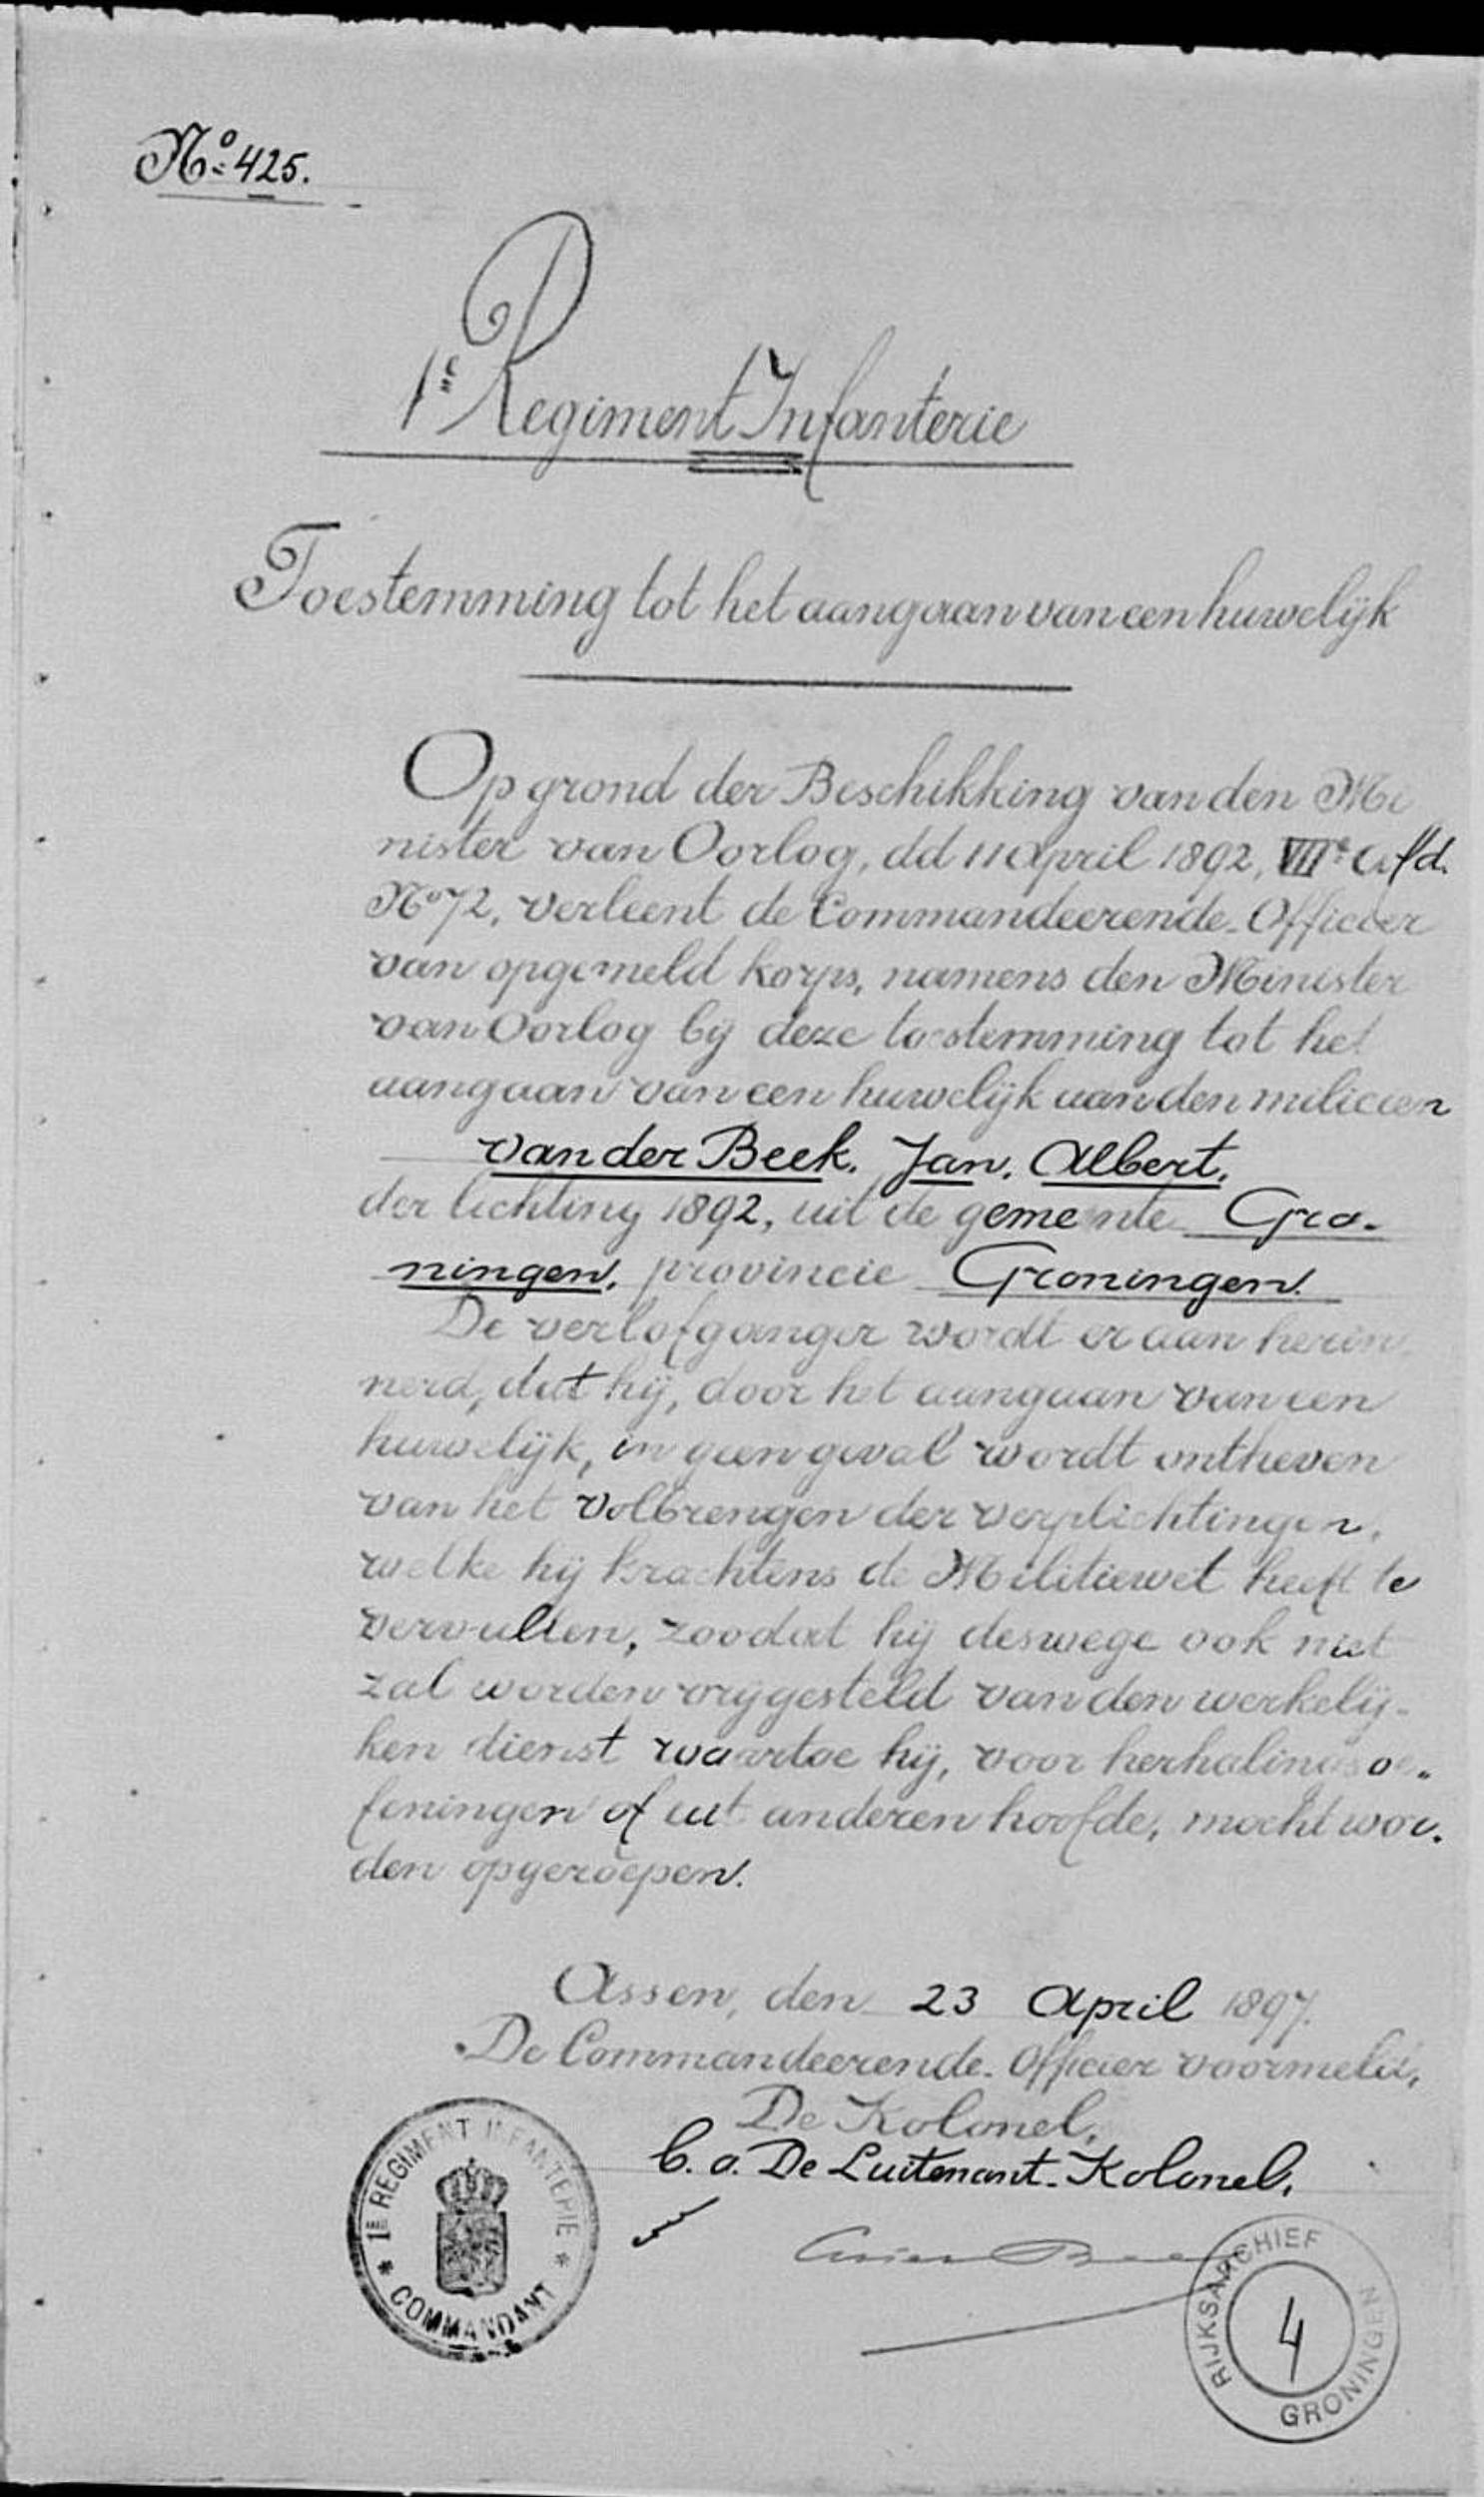 No 425.
1e Regiment Infanterie
Toestemming tot het aangaan van een huwelijk
Op grond der Beschikking van den Mi
nister van Oorlog, dd 11 April 1892, VIIe Afd.
No 72, verleent de Commandeerende-Officier
van opgemeld korps, namens den Minister
van Oorlog bij deze toestemming tot het
aangaan van een huwelijk aan den milicien
van der Beek. Jan. Albert.
der lichting 1892, uit de gemeente Gro-
ningen, provincie Groningen.
De verlofganger wordt er aan herin
nerd, dat hij, door het aangaan van een
huwelijk, in geen geval wordt ontheven
van het volbrengen der verplichtingen,
welke hij krachtens de Militiewet heeft te
vervullen, zoodat hij deswege ook niet
zal worden vrijgesteld van den werkelij-
ken dienst waartoe hij, voor herhalingsoe-
feningen of uit anderen hoofde, mocht wor-
den opgeroepen.
Assen, den 23 April 1897.
De Commandeerende-Officier voormeld,
De Kolonel,
b. a. De Luitenant-Kolonel,
1E REGIMENT INFANTERIE
* COMMANDANT *
RIJKSARCHIEF
4
GRONINGEN